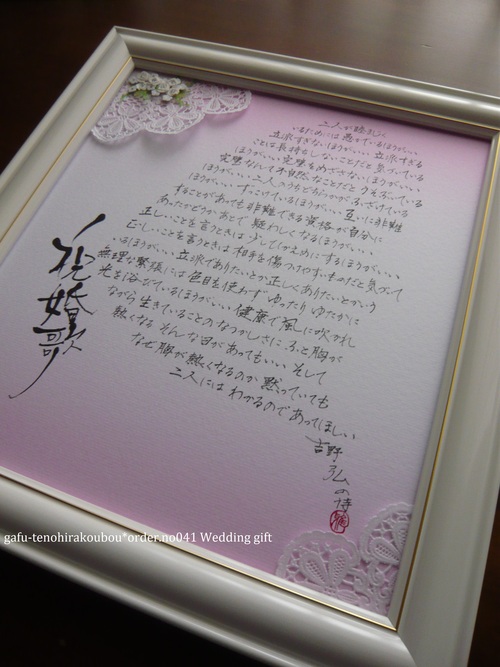 祝婚歌
二人が睦まじく
いるためには愚かでいるほうがいい
立派すぎないほうがいい 立派すぎる
ことは長持ちしないことだと気づいている
ほうがいい 完璧をめざさないほうがいい
完璧なんて不自然なことだとうそぶいている
ほうがいい 二人のうちどちらかがふざけている
ほうがいい ずっこけているほうがいい 互いに非難
することがあっても 非難できる資格が自分に
あったかどうか あとで 疑わしくなるほうがいい
正しいことを言うときは 少しひかえめにするほうがいい
正しいことを言うときは 相手を傷つけやすいものだと気づいて
いるほうがいい 立派でありたいとか正しくありたいとかいう
無理な緊張には 色目を使わず ゆったり ゆたかに
光を浴びているほうがいい 健康で 風に吹かれ
ながら 生きていることのなつかしさに ふと 胸が
熱くなる そんな日があってもいい そして
なぜ 胸が熱くなるのか 黙っていても
二人には わかるのであってほしい
吉野弘の詩
gafu-tenohirakoubou*order.no041 Wedding gift